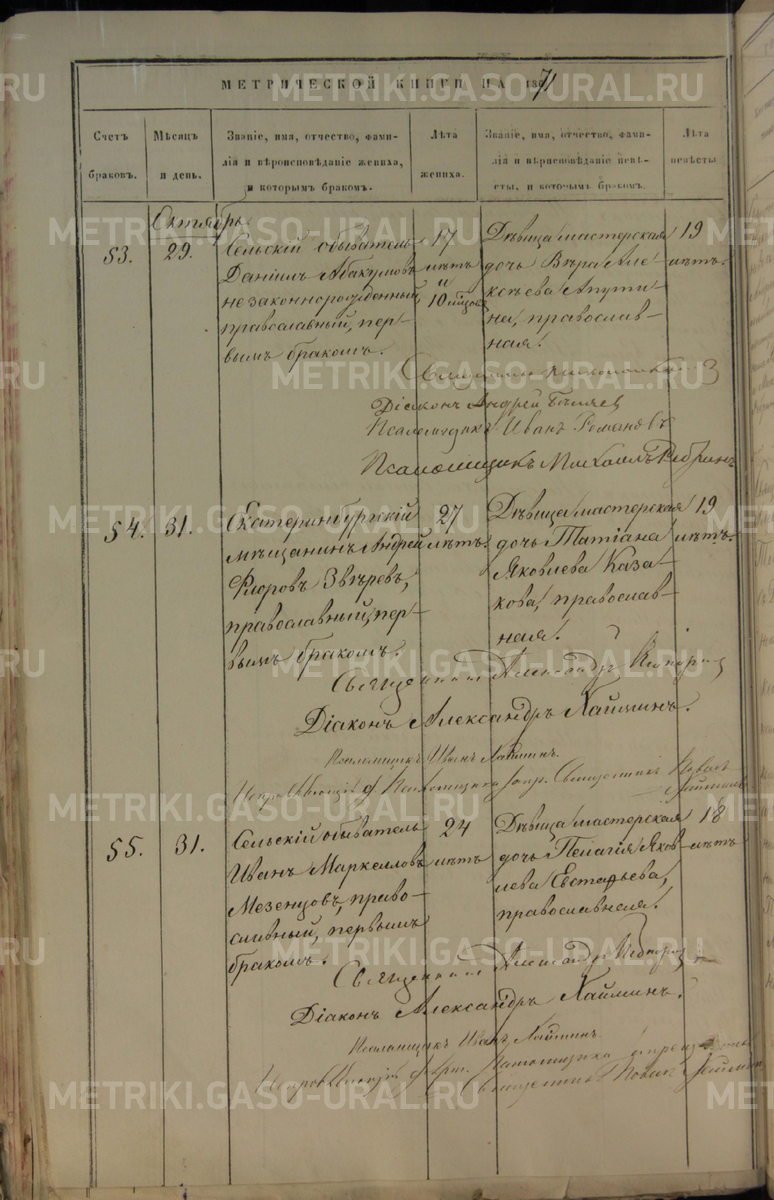 МЕТРИЧЕСКОЙ КНИГИ НА 1871
Счетъ браковъ.
Мѣсяцъ и день.
Званіе, имя, отчество, фами-
лія и вѣроисповѣданіе жениха,
и которымъ бракомъ.
Лѣта жениха.
Званіе, имя, отчество, фами-
лія и вѣрнсповѣданіе невѣ-
сты, и которымъ бракомъ.
Лѣта невѣсты
Октябрь
53.
29.
Сельскій обыватель
Даніилъ Абакумовъ
незаконнорожденный,
православный, пер-
вымъ бракомъ.
17
лѣтъ
и
10 мѣсяц.
Дѣвица мастерская
дочь Вѣра Але
ксѣева Апути
на, православ-
ная.
19
лѣтъ.
Діаконъ Андрей
Псаломщикъ Иванъ Романовъ
Псаломщикъ Михаилъ Ребринъ
54.
31.
Екатеринбургскій
мѣщанинъ Андрей
Флоровъ Звѣревъ,
православный, пер-
вымъ бракомъ.
27
лѣтъ.
Дѣвица мастерская
дочь Татіана
Яковлева Каза
кова, православ-
ная.
19
лѣтъ.
Священникъ Александръ
Діаконъ Александръ Хайминъ.
Псаломщикъ Иванъ Хайминъ.
55.
31.
Сельскій обыватель
Иванъ Маркелловъ
Мезенцовъ, право-
славный, первымъ
бракомъ.
24
лѣтъ
Дѣвица мастерская
дочь Пелагія Яков
лева Евстафьева,
православная.
18
лѣтъ
Священникъ Александръ
Діаконъ Александръ Хайминъ.
Псаломщикъ Иванъ Хайминъ.
METRIKI.GASO-URAL.RU